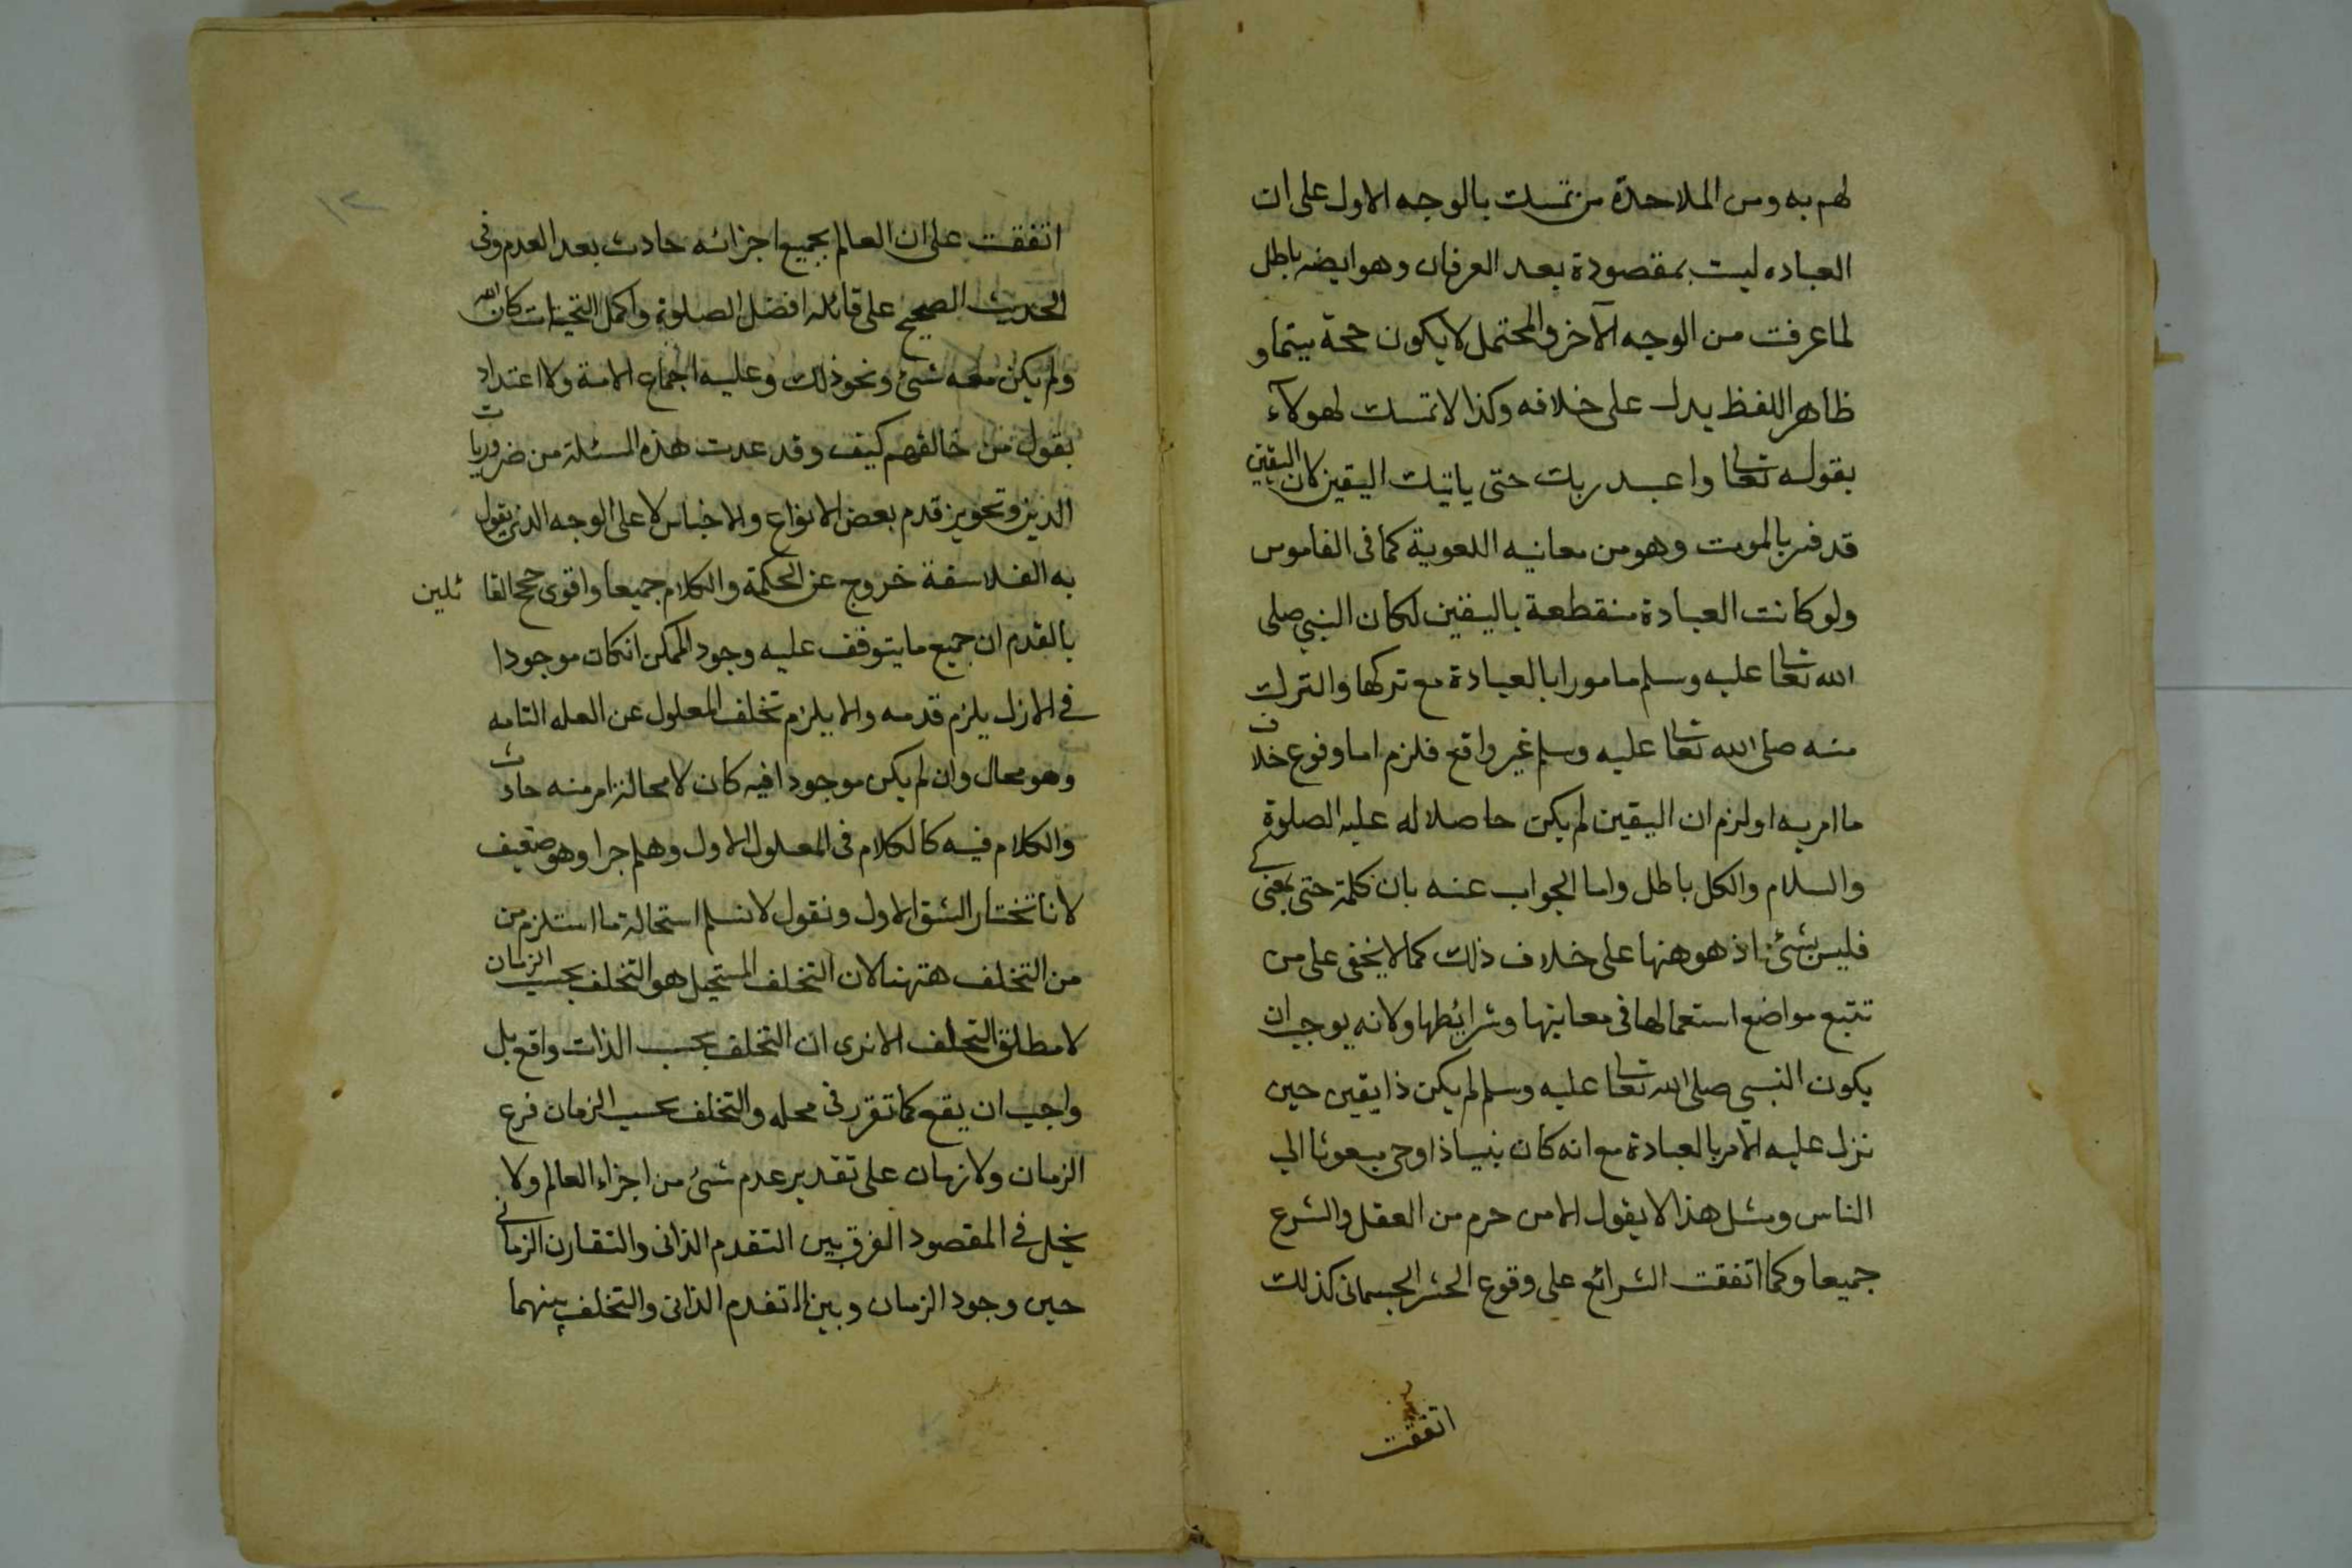 لهم به ومن الملاحدة من تمسك بالوجه الاول على ان
العباده ليست بمقصودة بعد العرفان وهو ايضه باطل
لما عرفت من الوجه الآخر والمحتمل لا يكون حجة سيما و
ظاهر اللفظ يدل على خلافه وكذا لا تمسك لهولآء
بقوله تعالى واعبد ربك حتى ياتيك اليقين كان اليقين
قد فسر بالموت وهو من معانيه اللغوية كما فى القاموس
ولو كانت العبادة منقطعة باليقين لكان النبي صلى
الله تعالى عليه وسلم مامورا بالعبادة مع تركها والترك
منه صلى الله تعالى عليه وسلم غير واقع فلزم اما وقوع خلاف
ما امر به او لزم ان اليقين لم يكن حاصلا له عليه الصلوة
والسلام والكل باطل واما الجواب عنه بان كلمة حتى بمعنى كى
فليس بشئ اذ هو ههنا على خلاف ذلك كما لا يخفى على من
تتبع مواضع استعمالها فى معانيها وشرائطها ولانه يوجب ان
يكون النبي صلى الله تعالى عليه وسلم لم يكن ذا يقين حين
نزل عليه الامر بالعبادة مع انه كان نبيا ذا وحى مبعوثا الى
الناس ومثل هذا لا يقول الا من حرم من العقل والشرع
جميعا وكما اتفقت الشرائع على وقوع الحشر الجسمانى كذلك
اتفقت
١٢
اتفقت على ان العالم بجميع اجزائه حادث بعد العدم وفى
الحديث الصحيح على قائله افضل الصلوة واكمل التحيات كان الله
ولم يكن معه شئ ونحو ذلك وعليه اجماع الامة ولا اعتداد
بقول من خالفهم كيف وقد عدت هذه المسئلة من ضروريات
الدين وتجويز قدم بعض الانواع والاجناس لا على الوجه الذى يقول
به الفلاسفة خروج عن الحكمة والكلام جميعا واقوى حجج القا ئلين
بالقدم ان جميع ما يتوقف عليه وجود الممكن انكان موجودا
فى الازل يلزم قدمه والا يلزم تخلف المعلول عن العله التامه
وهو محال وان لم يكن موجودا فيه كان لا محالة امر منه حادث
والكلام فيه كالكلام فى المعلول الاول وهلم جرا وهو ضعيف
لانا نختار الشق الاول ونقول لا نسلم استحالة ما استلزم من
من التخلف ههنا لان التخلف المستحيل هو التخلف بحسب الزمان
لا مطلق التخلف الا ترى ان التخلف بحسب الذات واقع بل
واجب ان يقع كما تقرر فى محله والتخلف بحسب الزمان فرع
الزمان ولا زمان على تقدير عدم شئ من اجزاء العالم ولا
يخل فى المقصود الفرق بين التقدم الذاتى والتقارن الزمانى
حين وجود الزمان وبين التقدم الذاتى والتخلف بينهما